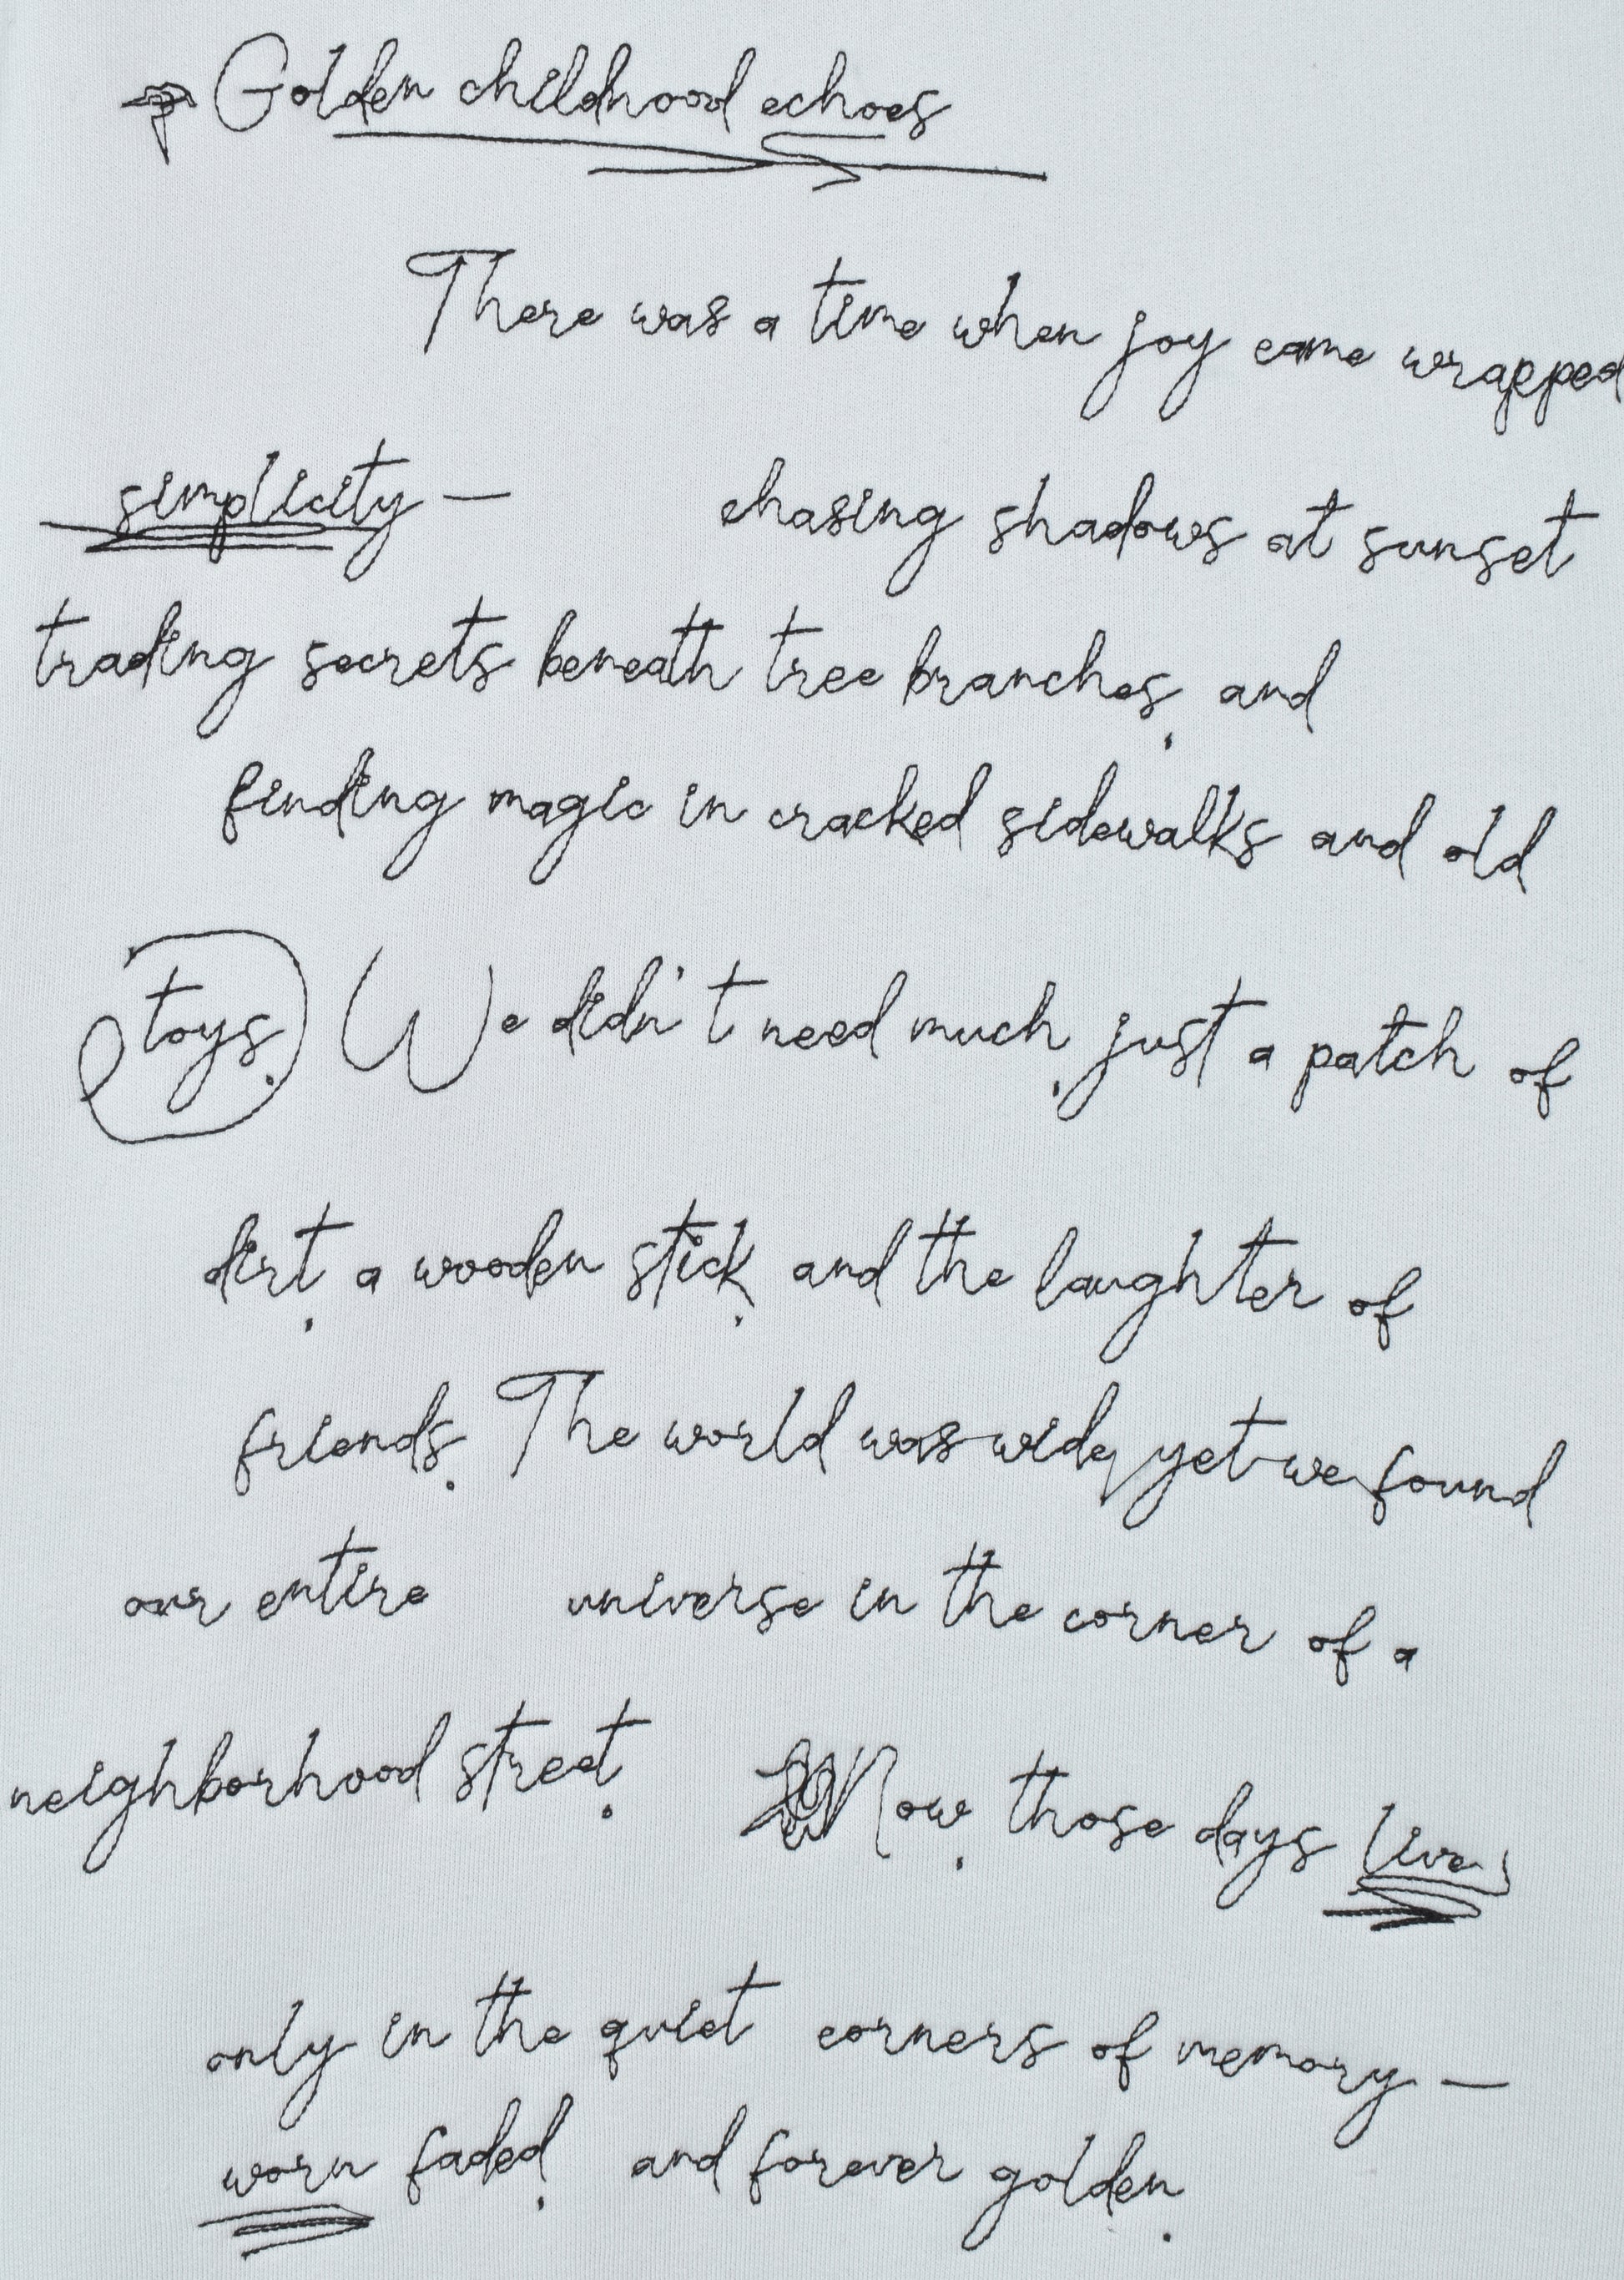 Golden childhood echoes
There was a time when joy came wrapped
simplicity — chasing shadows at sunset
trading secrets beneath tree branches, and
finding magic in cracked sidewalks and old
toys. We didn't need much, just a patch of
dirt, a wooden stick, and the laughter of
friends. The world was wide, yet we found
our entire universe in the corner of a
neighborhood street. Now, those days live
only in the quiet corners of memory —
worn faded, and forever golden.